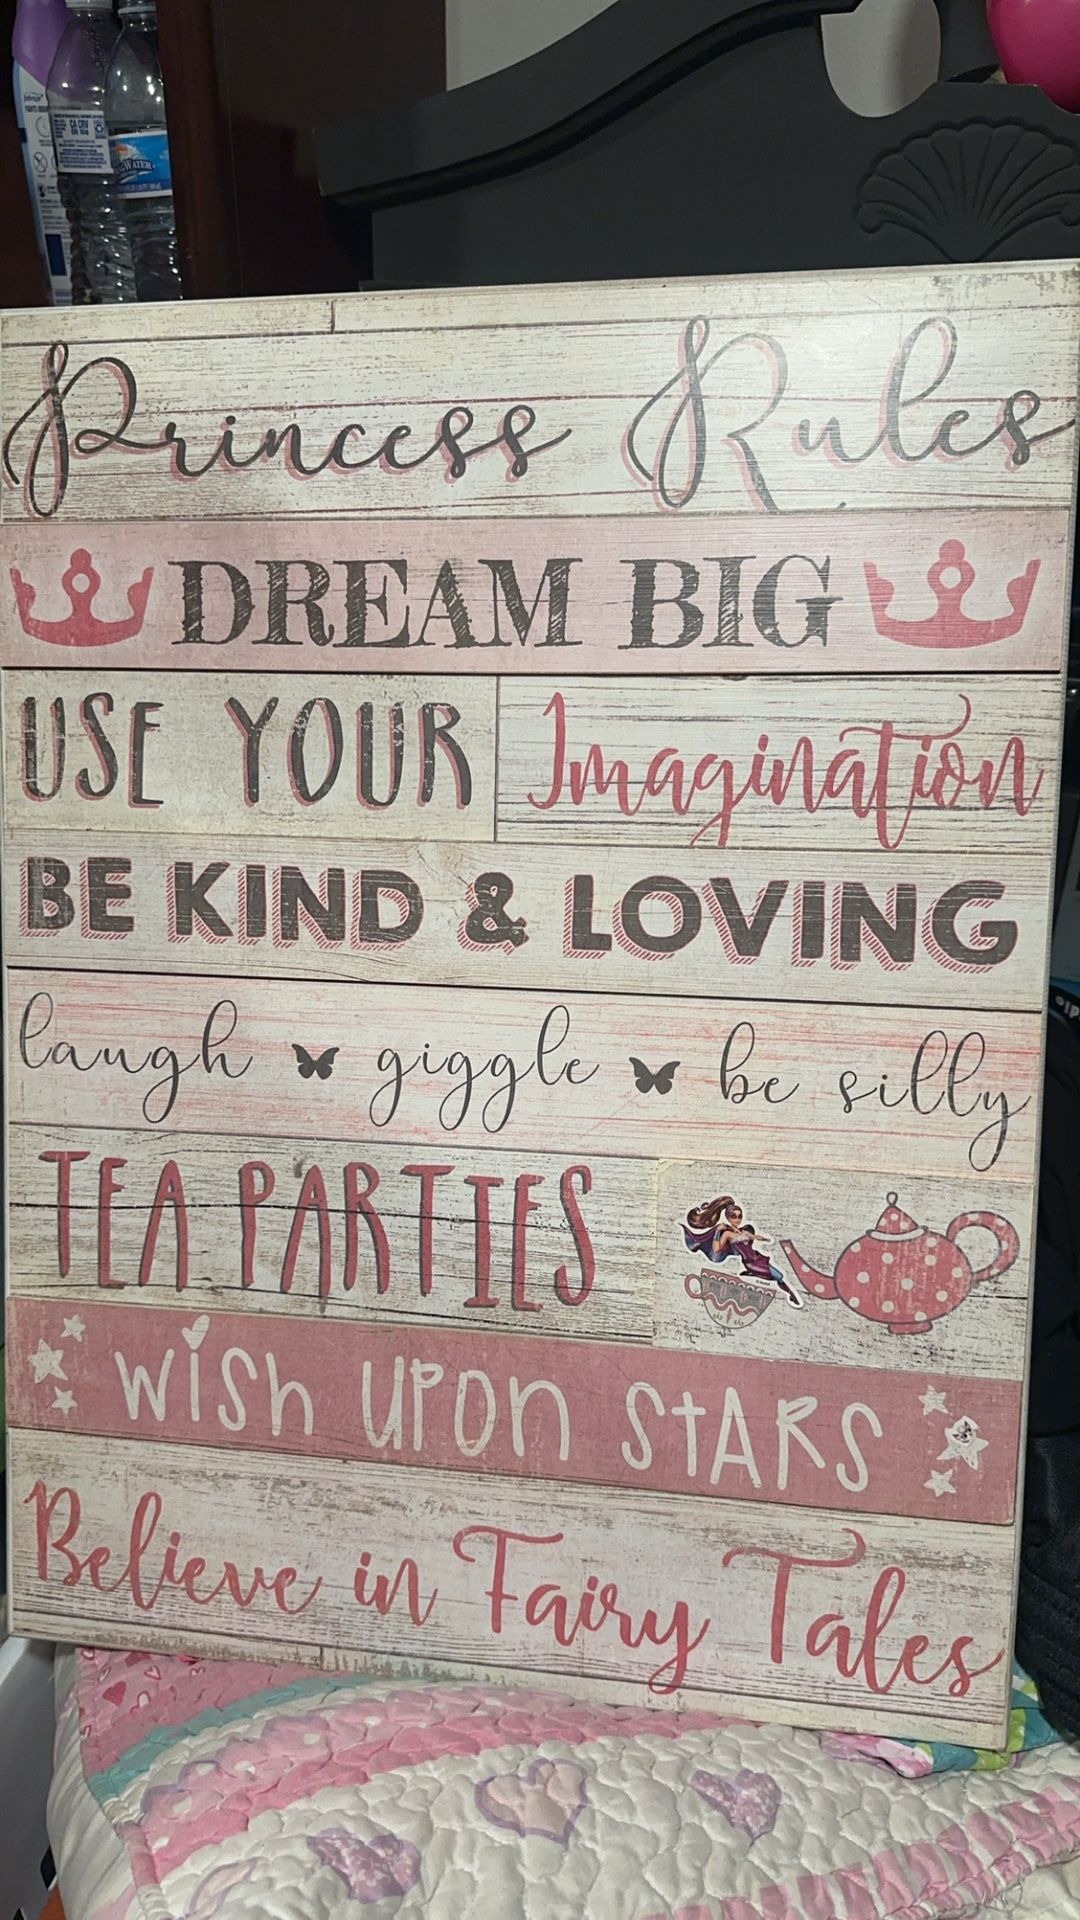 febreze
CA CRV
WATER
Princess Rules
DREAM BIG
USE YOUR Imagination
BE KIND & LOVING
laugh giggle be silly
TEA PARTIES
wish upon stARs
Believe in Fairy Tales